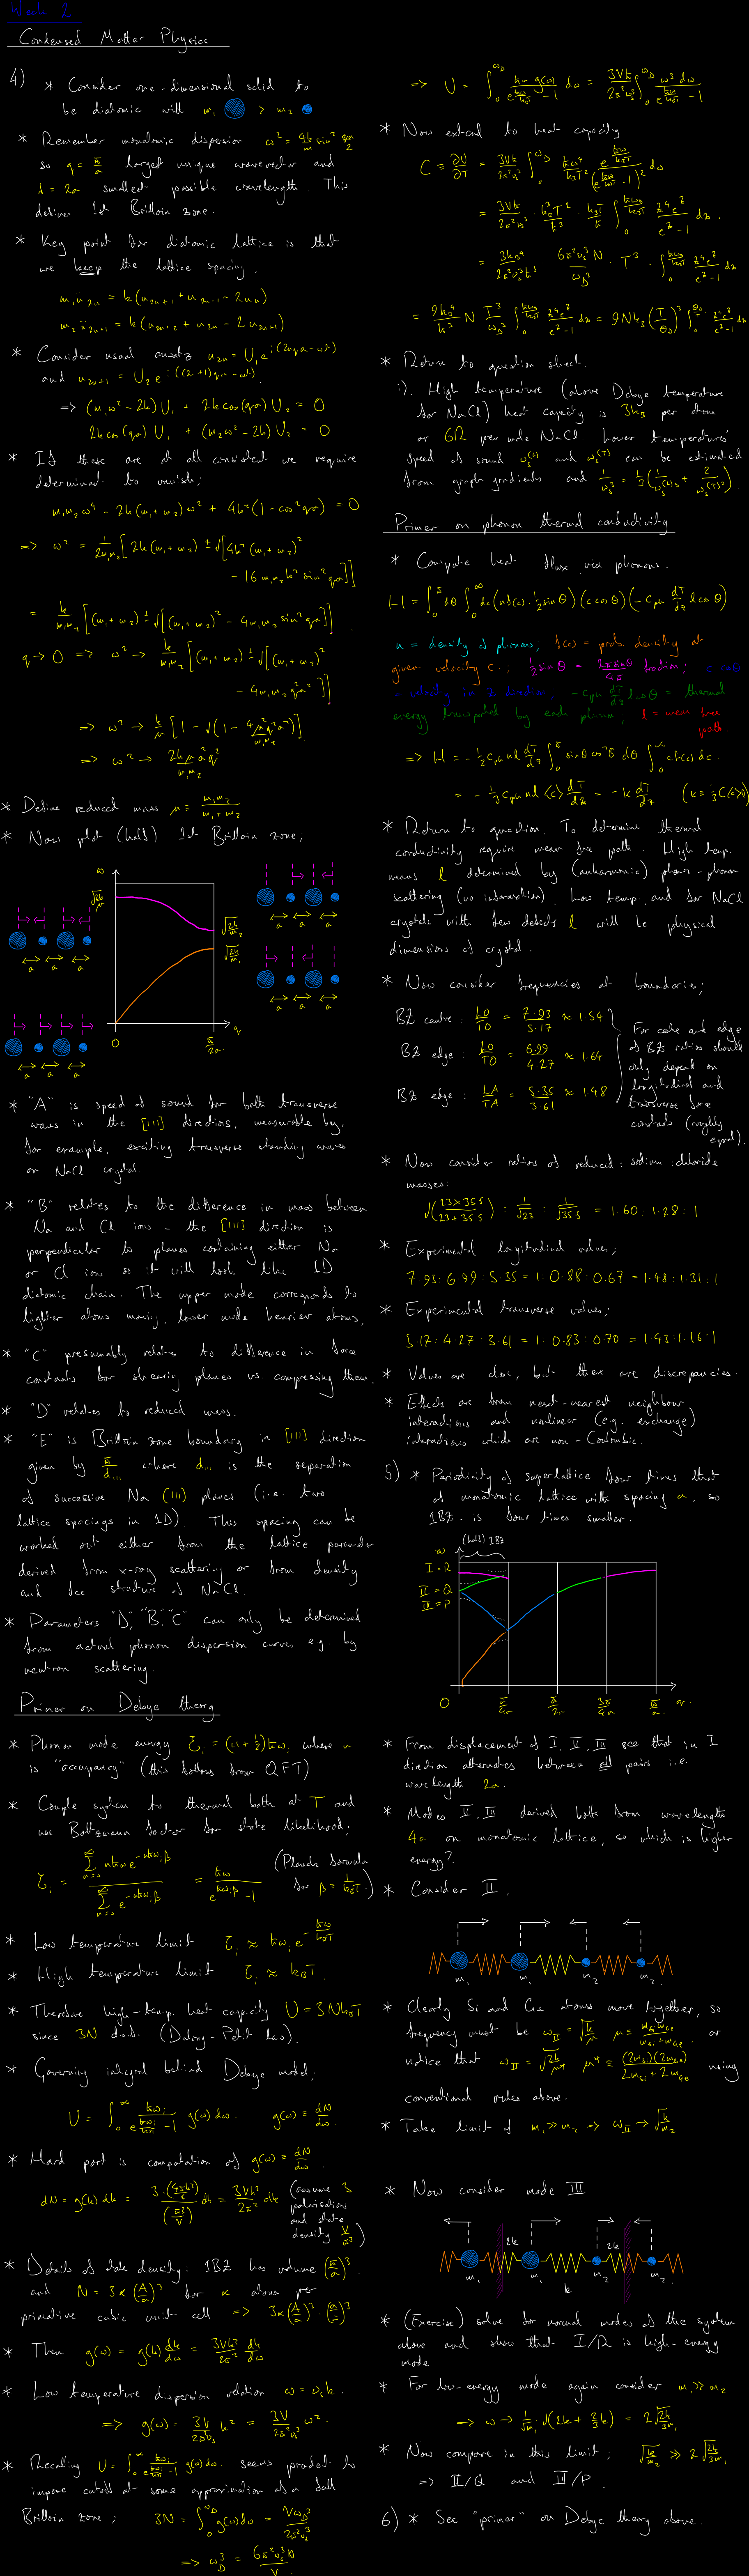 Week 2
Condensed Matter Physics
4) * Consider one-dimensional solid to
be diatomic with m₁ > m₂
* Remember monatomic dispersion ω² = 4k/m sin² qa/2
so q = π/a largest unique wavevector and
λ = 2a smallest possible wavelength. This
defines 1st Brilloin zone.
* Key point for diatomic lattice is that
we keep the lattice spacing.
m₁ü₂ₙ = k(u₂ₙ₊₁ + u₂ₙ₋₁ - 2u₂ₙ)
m₂ü₂ₙ₊₁ = k(u₂ₙ₊₂ + u₂ₙ - 2u₂ₙ₊₁)
* Consider usual ansatz u₂ₙ = U₁e^{i(2nqa-ωt)}
and u₂ₙ₊₁ = U₂e^{i((2n+1)qa-ωt)}
=> (m₁ω² - 2k)U₁ + 2k cos(qa)U₂ = 0
2k cos(qa)U₁ + (m₂ω² - 2k)U₂ = 0
* If these are at all consistent we require
determinant to vanish;
m₁m₂ω⁴ - 2k(m₁+m₂)ω² + 4k²(1 - cos²qa) = 0
=> ω² = 1/2m₁m₂ [2k(m₁+m₂) ± √[4k²(m₁+m₂)²
- 16m₁m₂k² sin²qa]]
= k/m₁m₂ [(m₁+m₂) ± √[(m₁+m₂)² - 4m₁m₂ sin²qa]]
q → 0 => ω² → k/m₁m₂ [(m₁+m₂) ± √[(m₁+m₂)²
- 4m₁m₂q²a²]]
=> ω² → k/μ [1 - √(1 - 4μ²q²a²/m₁m₂)]
=> ω² → 2kμa²q²/m₁m₂
* Define reduced mass μ = m₁m₂/m₁+m₂
* Now plot (half) 1st Brilloin zone;
ω
√2k/μ
√2k/m₂
√2k/m₁
0
π/2a
q
a a a
a a a
a a a
a a a
* "A" is speed of sound for both transverse
waves in the [111] direction, measurable by,
for example, exciting transverse standing waves
on NaCl crystal.
* "B" relates to the difference in mass between
Na and Cl ions - the [111] direction is
perpendicular to planes containing either Na
or Cl ions so it will look like 1D
diatomic chain. The upper mode corresponds to
lighter atoms moving, lower mode heavier atoms.
* "C" presumably relates to difference in force
constants for shearing planes vs. compressing them.
* "D" relates to reduced mass.
* "E" is Brilloin zone boundary in [111] direction
given by π/d₁₁₁ where d₁₁₁ is the separation
of successive Na (111) planes (i.e. two
lattice spacings in 1D). This spacing can be
worked out either from the lattice parameter
derived from x-ray scattering or from density
and fcc structure of NaCl.
* Parameters "D", "B", "C" can only be determined
from actual phonon dispersion curves e.g. by
neutron scattering.
Primer on Debye theory
* Phonon mode energy ε_i = (n+½)ħω_i where n
is "occupancy" (this follows from QFT)
* Couple system to thermal bath at T and
use Boltzmann factor for state likelihood;
ε_i = Σ_{n=0}^∞ nħω e^{-nħω_iβ} / Σ_{n=0}^∞ e^{-nħω_iβ} = ħω/(e^{ħω_iβ} - 1) (Planck formula for β = 1/k_BT.)
* Low temperature limit ε_i ≈ ħω_i e^{-ħω/k_BT}
* High temperature limit ε_i ≈ k_BT.
* Therefore high-temp. heat capacity U = 3Nk_BT
since 3N d.o.f. (Dulong-Petit law).
* Governing integral behind Debye model;
U = ∫₀^∞ ħω_i/(e^{ħω_i/k_BT} - 1) g(ω)dω. g(ω) = dN/dω.
* Hard part is computation of g(ω) = dN/dω.
dN = g(k)dk = 3·(4πk²/8)/(π³/V) dk = 3Vk²/2π² dk (assume 3 polarisations and state density V/π³)
* Details of state density: 1BZ has volume (π/a)³
and N = 3α(A/a)³ for α atoms per
primative cubic unit cell => 3α(A/a)³·(a/π)³
* Then g(ω) = g(k)dk/dω = 3Vk²/2π² dk/dω
* Low temperature dispersion relation ω = v_s k.
=> g(ω) = 3V/2π²v_s k² = 3V/2π²v_s³ ω².
* Recalling U = ∫₀^∞ ħω_i/(e^{ħω_i/k_BT} - 1) g(ω)dω. seems prudent to
impose cutoff at some approximation of a full
Brilloin zone; 3N = ∫₀^{ω_D} g(ω)dω = Vω_D³/2π²v_s³
=> ω_D³ = 6π²v_s³N/V
=> U = ∫₀^{ω_D} ħω g(ω)/(e^{ħω/k_BT} - 1) dω = 3Vħ/2π²v_s³ ∫₀^{ω_D} ω³dω/(e^{ħω/k_BT} - 1)
* Now extend to heat capacity
C = ∂U/∂T = 3Vħ/2π²v_s³ ∫₀^{ω_D} ħω⁴/k_BT² e^{ħω/k_BT}/(e^{ħω/k_BT} - 1)² dω
= 3Vħ/2π²v_s³ · k_B²T²/ħ³ · k_BT/ħ ∫₀^{ħω_D/k_BT} z⁴e^z/(e^z - 1) dz.
= 3k_B⁴/2π²v_s³ħ³ · 6π²v_s³N/ω_D³ · T³ · ∫₀^{ħω_D/k_BT} z⁴e^z/(e^z - 1) dz
= 9k_B⁴/ħ³ N T³/ω_D³ ∫₀^{ħω_D/k_BT} z⁴e^z/(e^z - 1) dz = 9Nk_B(T/Θ_D)³ ∫₀^{Θ_D/T} z⁴e^z/(e^z - 1) dz
* Return to question sheet.
i). High temperature (above Debye temperature
for NaCl) heat capacity is 3k_B per atom
or 6R per mole NaCl. Lower temperatures'
speed of sound v_s^(L) and v_s^(T) can be estimated
from graph gradients and 1/v_s³ = 1/3(1/v_s^(L)³ + 2/v_s^(T)³)
Primer on phonon thermal conductivity
* Compute heat flux via phonons.
H = ∫₀^π dθ ∫₀^∞ dc (n f(c)·½ sinθ)(c cosθ)(-c_ph dT/dz l cosθ)
n = density of phonons; f(c) = prob. density at
given velocity c.; ½ sinθ = 2π sinθ/4π fraction; c cosθ
= velocity in z direction. -c_ph dT/dz l cosθ = thermal
energy transported by each phonon, l = mean free
path.
=> H = -½ c_ph n l dT/dz ∫₀^π sinθ cos²θ dθ ∫₀^∞ c f(c) dc.
= -⅓ c_ph n l <c> dT/dz = -k dT/dz. (k = ⅓ C l <c>)
* Return to question. To determine thermal
conductivity require mean free path. High temp.
means l determined by (anharmonic) phonon-phonon
scattering (no information). Low temp. and for NaCl
crystals with few defects l will be physical
dimensions of crystal.
* Now consider frequencies at boundaries;
BZ centre: LO/TO = 7.93/5.17 ≈ 1.54
BZ edge: LO/TO = 6.99/4.27 ≈ 1.64
BZ edge: LA/TA = 5.35/3.61 ≈ 1.48
For centre and edge
of BZ ratios should
only depend on
longitudinal and
transverse force
constants (roughly
equal).
* Now consider ratios of reduced: sodium: chloride
masses:
√(23×35.5/23+35.5) : 1/√23 : 1/√35.5 = 1.60 : 1.28 : 1
* Experimental longitudinal values;
7.93 : 6.99 : 5.35 = 1 : 0.88 : 0.67 = 1.48 : 1.31 : 1
* Experimental transverse values;
5.17 : 4.27 : 3.61 = 1 : 0.83 : 0.70 = 1.43 : 1.16 : 1
* Values are close, but there are discrepancies.
* Effects are from next-nearest neighbour
interactions and nonlinear (e.g. exchange)
interactions which are non-Coulombic.
5) * Periodicity of superlattice four times that
of monatomic lattice with spacing a, so
1BZ is four times smaller.
(half) 1BZ
ω
I = R
II = Q
III = P
0
π/4a
π/2a
3π/4a
π/a
q
* From displacement of I, II, III see that in I
direction alternates between all pairs i.e.
wavelength 2a.
* Modes II, III derived both from wavelength
4a on monatomic lattice, so which is higher
energy?
* Consider II.
m₁ m₁ m₂ m₂
* Clearly Si and Ge atoms move together, so
frequency must be ω_II = √k/μ μ = m_Si m_Ge/m_Si+m_Ge or
notice that ω_II = √2k/μ* μ* = (2m_Si)(2m_Ge)/2m_Si+2m_Ge using
conventional rules above.
* Take limit of m₁ >> m₂ => ω_II → √k/m₂
* Now consider mode III
2k 2k
m₁ m₁ k m₂ m₂
* (Exercise) solve for normal modes of the system
above and show that I/R is high-energy
mode
* For low-energy mode again consider m₁ >> m₂
=> ω → 1/√m₁ √(2k + ⅔k) = 2√2k/3m₁
* Now compare in this limit; √k/m₂ >> 2√2k/3m₁
=> II/Q and III/P.
6) * See "primer" on Debye theory above.